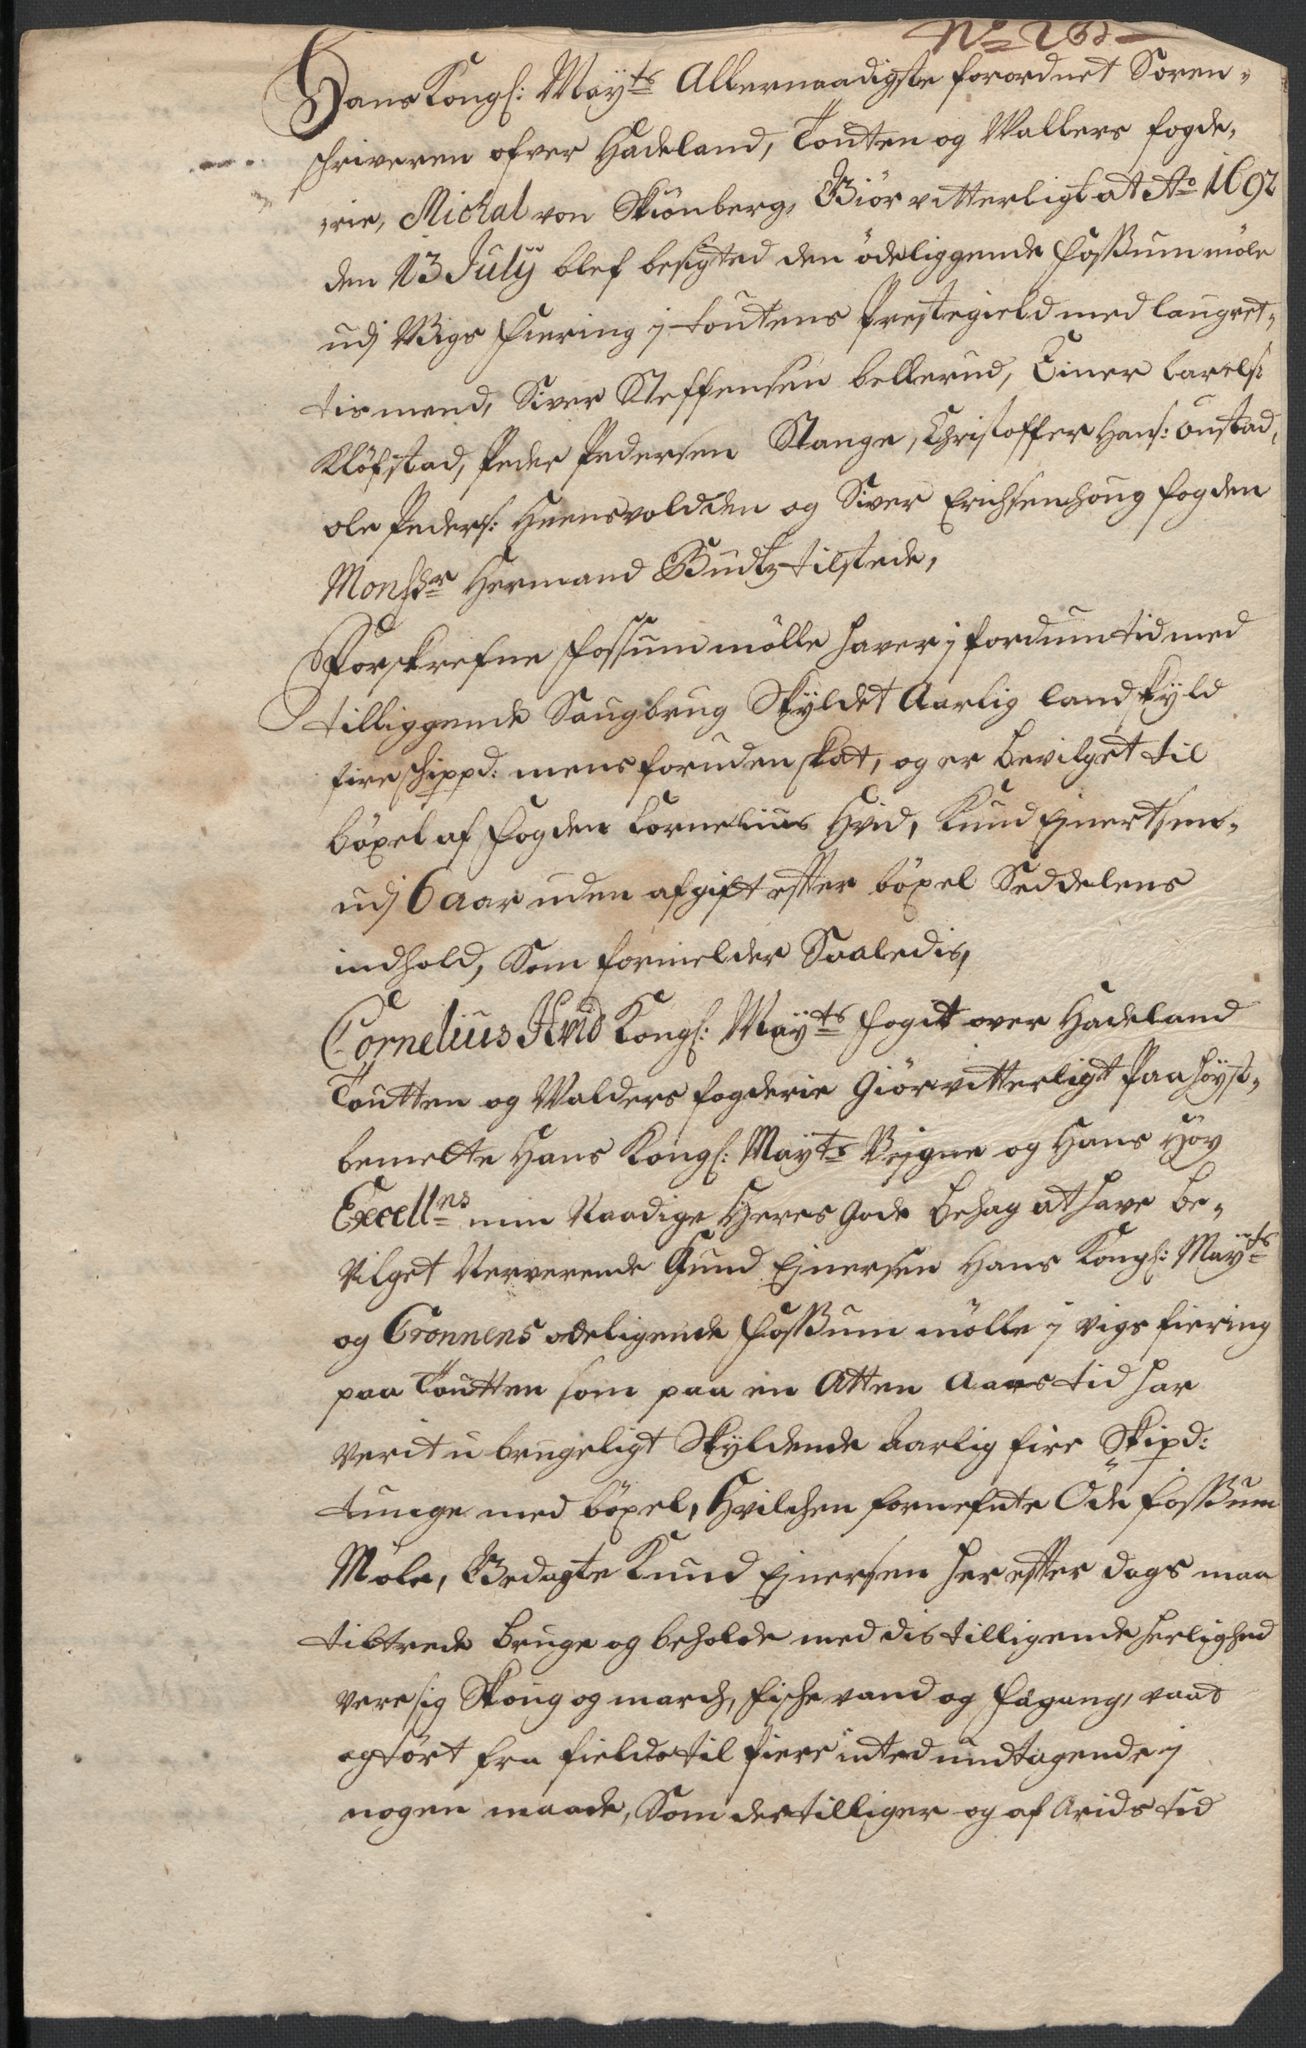 No 26
Hans Kongl: Mayts Allernaadigste forordnet Soren-
schriveren ofver Hadeland, Touten og Wallers fogde-
rie, Michal von Skiönberg, Giör vitterligt at Ao 1692
den 13 July blef besigted den ödeliggende Fossum möle
udj Wigs Fiering j toutens Prestegield med laugret-
tis mend, Siver Steffensen bellerud, Einer Carels:
Klöfstad, Peder Pedersen Stange, Christoffer Hans: Onstad,
ole Peders: Heensvoldden og Siver Erichsen houg fogden
Monssr Hermand Budtz tilstede,
Forskrefne Fossum mölle haver j fordum tid med
tilliggende Saugbrug Skyldet Aarlig landskyld
fire schippd: mens foruden skat, og er bevilget til
böxel af Fogden Cornelius Hvid, Knud Ejnertsen
udj 6 Aar uden afgift efter böxel Seddelens
indhold, Som formelder Saaledis,
Cornelius Hvid Kongl: Mayts Fogit over Hadeland
Toutten og Walders fogderie Giör vitterligt Paa höyst-
bemelte Hans Kongl: Mayts Vejgne og Hans Höy
Excellns min Naadige Herres gode behag at have be-
vilget Nerverende Knud Ejnersen Hans Kongl: Mayts
og Cronnens ödeligende Fossum mölle j Vigs fiering
paa Toutten som paa en Atten Aars tid har
verit u brugeligt Skyldende Aarlig fire Skipd:
tunge med böxel, Hvilchen fornefnte Öde Fossum
Möle, Bedagte Knud Ejnersen her efter dags maa
tiltrede bruge og beholde med dis tilligende herlighed
vere sig Skoug og march, fiche vand og fægang, vaat
og tört fra fields til fiere inted undtagende j
nogen maade, Som der tilliger og af Arids tid